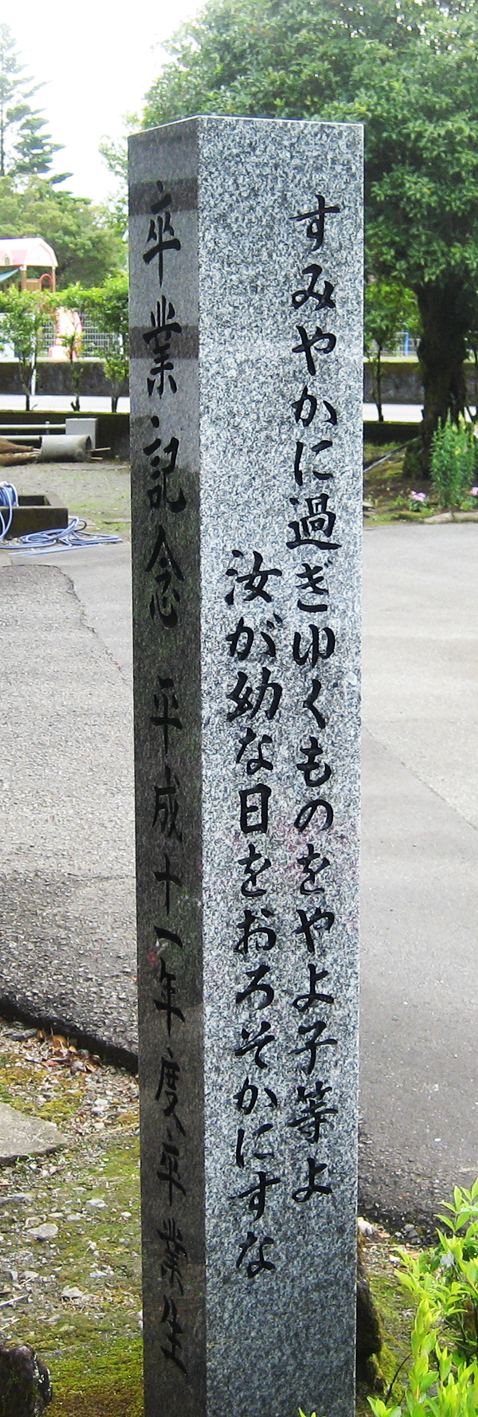 すみやかに過ぎゆくものをやよ子等よ
汝が幼な日をおろそかにすな
卒業記念 平成十一年度卒業生